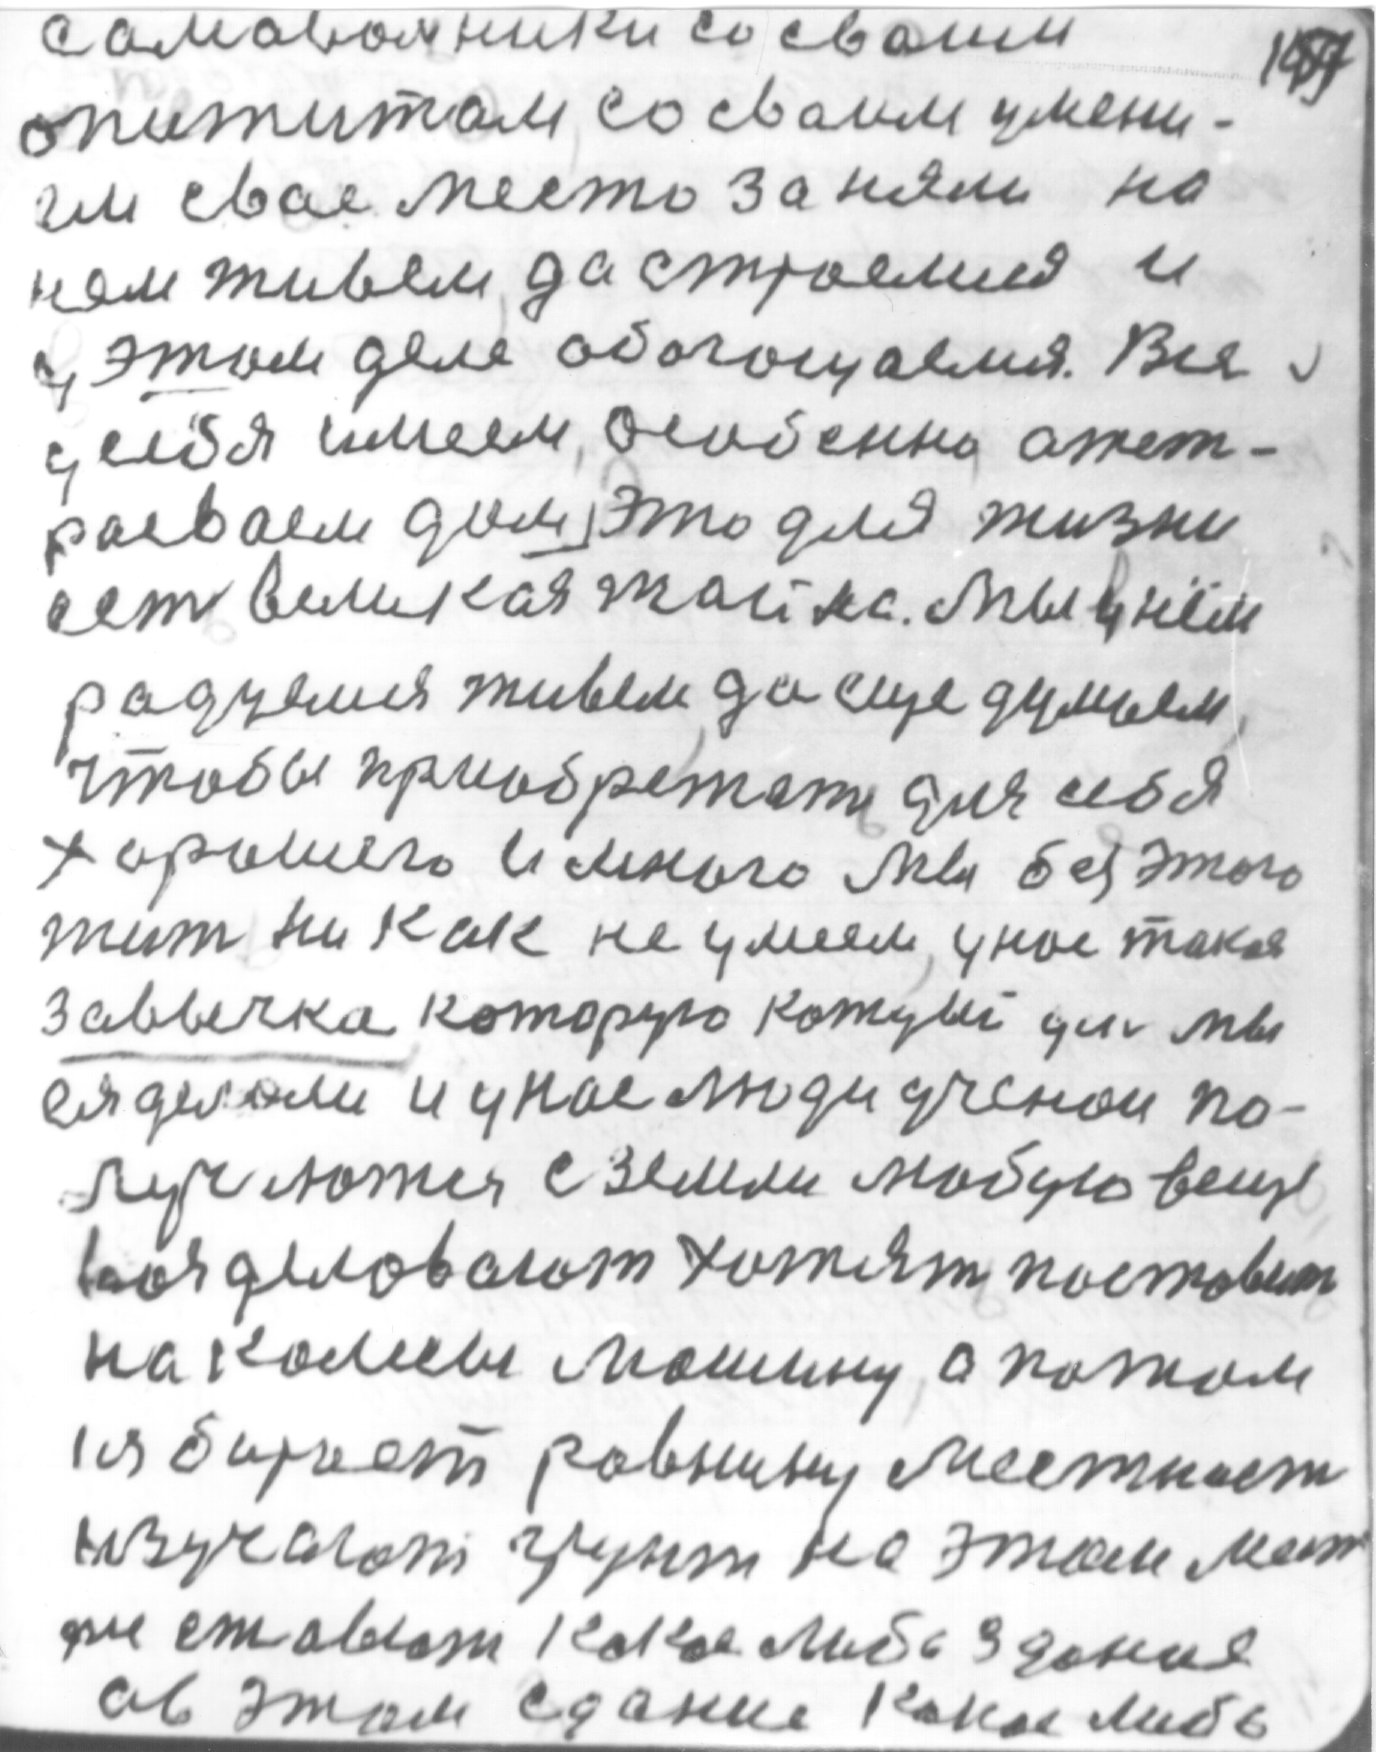 самавольники со сваим
опититам, со сваим умени-
им свае место заняли на
нем живем, да строемся и
у этом деле обогощаемся. Все
у себя имеем, особенно отст-
раеваем дом, это для жизни
ест великая тайна. Мы у нём
радуемся живем, да еще думаем,
чтобы приобретать для себя
хорошего и много мы без этого
жит ни как не умеем, у нас такая
завычка которую кождый ден мы
ея делали и у нас люди ученаи по-
лучаются с земли любую вещь
выделовают хотят поставит
на колесы мошину, а потом
бирает равнину местност
изучают грунт на этом мест
ставют какое либо здание
ав этом сдание какое либо